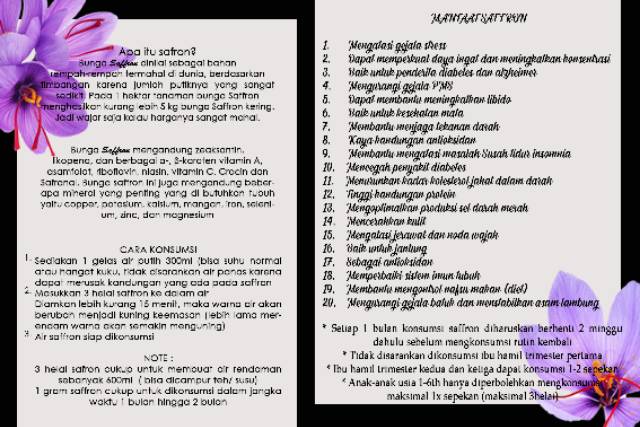 Apa itu safron?
Bunga Saffron dinilai sebagai bahan
rempah-rempah termahal di dunia, berdasarkan
timbangan karena jumlah putiknya yang sangat
sedikit. Pada 1 hektar tanaman bunga Saffron
menghasilkan kurang lebih 5 kg bunga Saffron kering.
Jadi wajar saja kalau harganya sangat mahal.
Bunga Saffron mengandung zeaksantin,
likopena, dan berbagai a-, β-karoten vitamin A,
asamfolat, riboflavin, niasin, vitamin C, Crocin dan
Safranal. Bunga saffron ini juga mengandung beber-
apa mineral yang penting yang di butuhkan tubuh
yaitu copper, potasium, kalsium, mangan, iron, seleni-
um, zinc, dan magnesium
CARA KONSUMSI
1. Sediakan 1 gelas air putih 300ml (bisa suhu normal
atau hangat kuku, tidak disarankan air panas karena
dapat merusak kandungan yang ada pada saffron
2. Masukkan 3 helai saffron ke dalam air
Diamkan lebih kurang 15 menit, maka warna air akan
berubah menjadi kuning keemasan (lebih lama mer-
endam warna akan semakin menguning)
3. Air saffron siap dikonsumsi
NOTE :
3 helai safron cukup untuk membuat air rendaman
sebanyak 600ml ( bisa dicampur teh/ susu)
1 gram saffron cukup untuk dikonsumsi dalam jangka
waktu 1 bulan hingga 2 bulan
MANFAAT SAFFRON
1. Mengatasi gejala stress
2. Dapat memperkuat daya ingat dan meningkatkan konsentrasi
3. Baik untuk penderita diabetes dan alzheimer
4. Mengurangi gejala PMS
5. Dapat membantu meningkatkan libido
6. Baik untuk kesehatan mata
7. Membantu menjaga tekanan darah
8. Kaya kandungan antioksidan
9. Membantu mengatasi masalah Susah tidur insomnia
10. Mencegah penyakit diabetes
11. Menurunkan kadar kolesterol jahat dalam darah
12. Tinggi kandungan protein
13. Mengoptimalkan produksi sel darah merah
14. Mencerahkan kulit
15. Mengatasi jerawat dan noda wajah
16. Baik untuk jantung
17. Sebagai antioksidan
18. Memperbaiki sistem imun tubuh
19. Membantu mengontrol nafsu makan (diet)
20. Mengurangi gejala batuk dan menstabilkan asam lambung
* Setiap 1 bulan konsumsi saffron diharuskan berhenti 2 minggu
dahulu sebelum mengkonsumsi rutin kembali
* Tidak disarankan dikonsumsi ibu hamil trimester pertama
* Ibu hamil trimester kedua dan ketiga dapat konsumsi 1-2 sepekan
* Anak-anak usia 1-6th hanya diperbolehkan mengkonsumsi
maksimal 1x sepekan (maksimal 3helai)